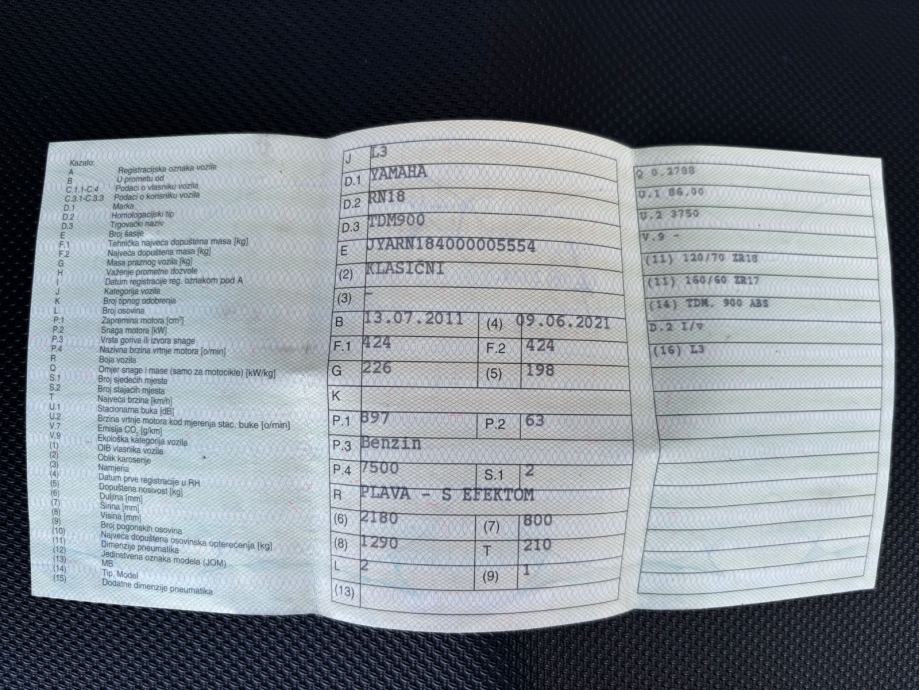 Kazalo:
A Registracijska oznaka vozila
B U prometu od
C.1.1-C.4 Podaci o vlasniku vozila
C.3.1-C.3.3 Podaci o korisniku vozila
D.1 Marka
D.2 Homologacijski tip
D.3 Trgovački naziv
E Broj šasije
F.1 Tehnička najveća dopuštena masa [kg]
F.2 Najveća dopuštena masa [kg]
G Masa praznog vozila [kg]
H Važenje prometne dozvole
I Datum registracije reg. oznakom pod A
J Kategorija vozila
K Broj tipnog odobrenja
L Broj osovina
P.1 Zapremina motora [cm³]
P.2 Snaga motora [kW]
P.3 Vrsta goriva ili izvora snage
P.4 Nazivna brzina vrtnje motora [o/min]
R Boja vozila
Q Omjer snage i mase (samo za motocikle) [kW/kg]
S.1 Broj sjedećih mjesta
S.2 Broj stajaćih mjesta
T Najveća brzina [km/h]
U.1 Stacionarna buka [dB]
U.2 Brzina vrtnje motora kod mjerenja stac. buke [o/min]
V.7 Emisija CO₂ [g/km]
V.9 Ekološka kategorija vozila
(1) OIB vlasnika vozila
(2) Oblik karoserije
(3) Namjena
(4) Datum prve registracije u RH
(5) Dopuštena nosivost [kg]
(6) Duljina [mm]
(7) Širina [mm]
(8) Visina [mm]
(9) Broj pogonskih osovina
(10) Najveća dopuštena osovinska opterećenja [kg]
(11) Dimenzije pneumatika
(12) Jedinstvena oznaka modela (JOM)
(13) MB
(14) Tip, Model
(15) Dodatne dimenzije pneumatika
J L3
D.1 YAMAHA
D.2 RN18
D.3 TDM900
E JYARN184000005554
(2) KLASIČNI
(3) -
B 13.07.2011 (4) 09.06.2021
F.1 424 F.2 424
G 226 (5) 198
K
P.1 897 P.2 63
P.3 Benzin
P.4 7500 S.1 2
R PLAVA - S EFEKTOM
(6) 2180 (7) 800
(8) 1290 T 210
L 2 (9) 1
(13)
Q 0.2788
U.1 86,00
U.2 3750
V.9 -
(11) 120/70 ZR18
(11) 160/60 ZR17
(14) TDM, 900 ABS
D.2 I/v
(16) L3